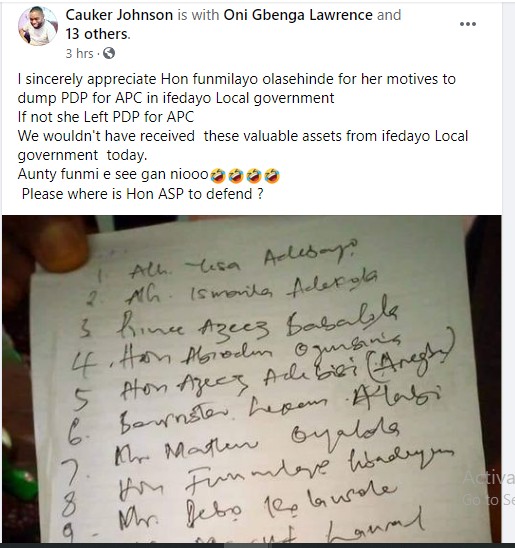 Cauker Johnson is with Oni Gbenga Lawrence and
13 others.
3 hrs ·
I sincerely appreciate Hon funmilayo olasehinde for her motives to
dump PDP for APC in ifedayo Local government
If not she Left PDP for APC
We wouldn't have received these valuable assets from ifedayo Local
government today.
Aunty funmi e see gan niooo🤣🤣🤣🤣
Please where is Hon ASP to defend ?
1. Alh. Adebayo
2. Alh. Ismaila Adekola
3 Prince Azeez Babalola
4. Hon Abiodun
5 Hon Azeez Adebisi
6. Barrister Alabi
7. Mr. Mathew Oyalola
8 Hon Funmilayo
9. Mr. Debo Kolawole
Lawal
Activa
Go to Se